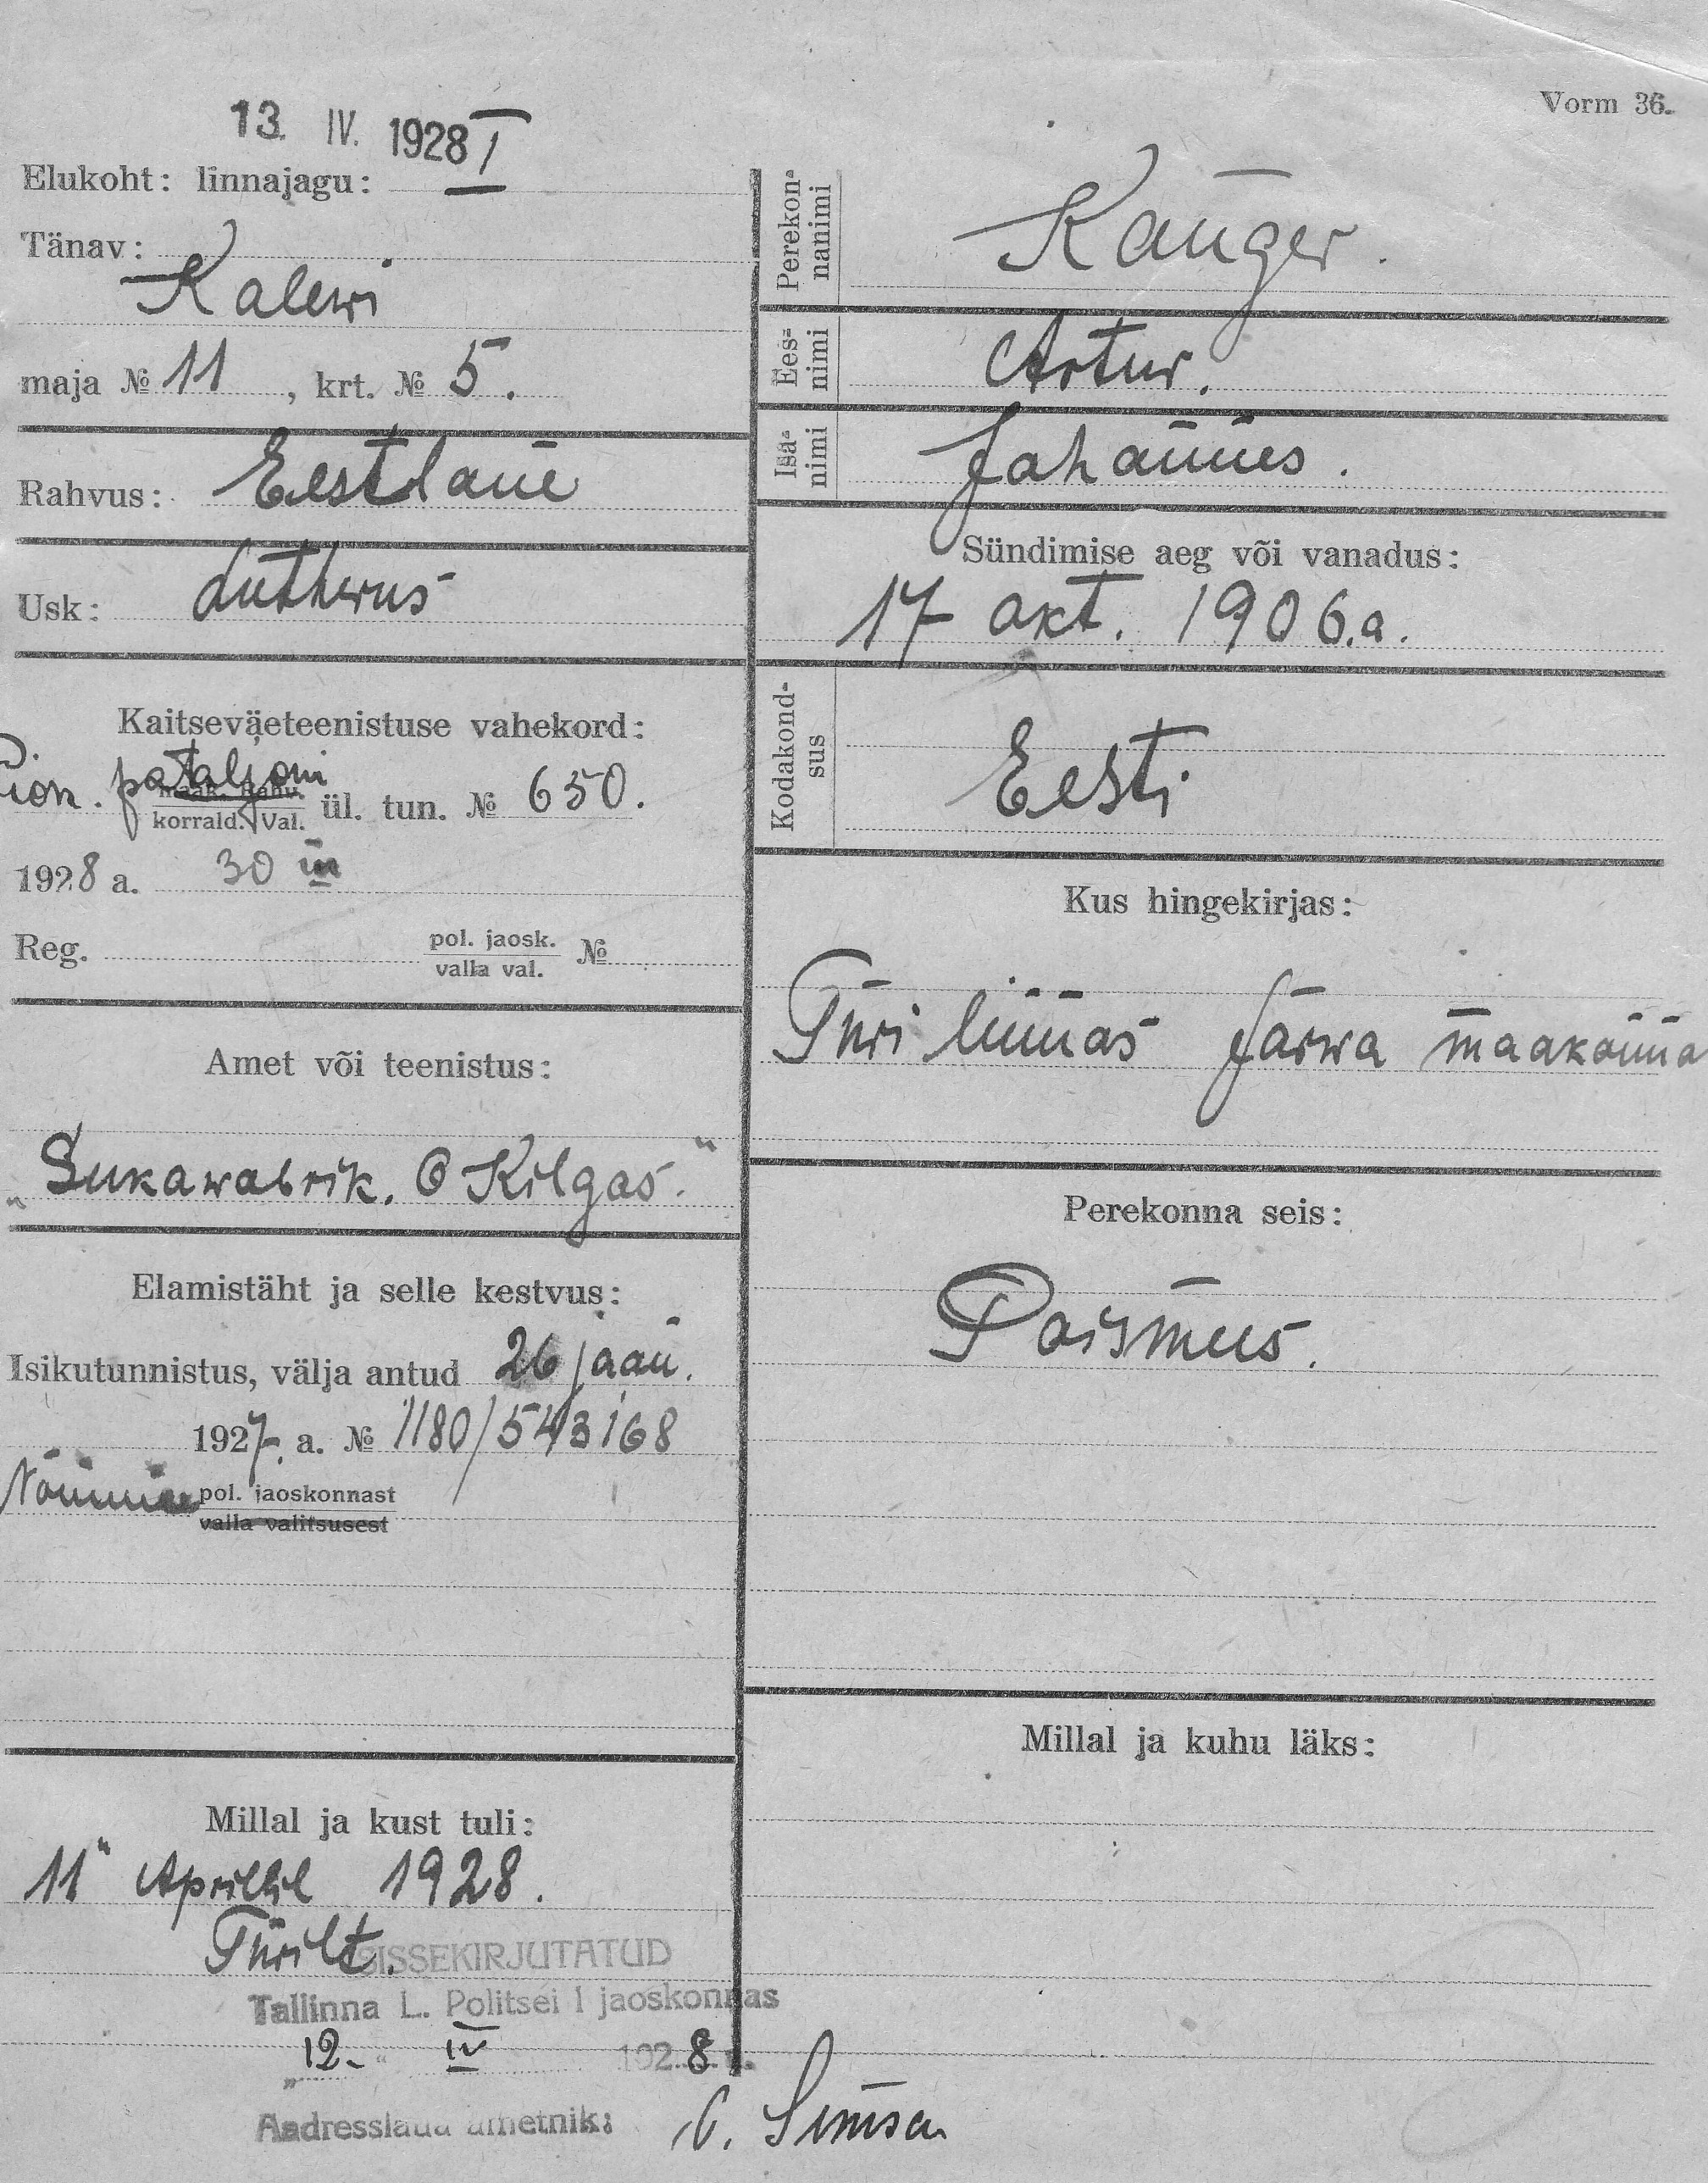 Vorm 36.
13. IV. 1928
Elukoht: linnajagu: I
Tänav:
Kalewi
maja № 11, krt. № 5.
Rahvus: Eestlane
Usk: Lutherus
Kaitseväeteenistuse vahekord:
Pion. pataljoni
maak. Rahv.
korrald. Val. ül. tun. № 650.
1928 a. 30 III
Reg. pol. jaosk. №
valla val.
Amet või teenistus:
„Sukawabrik. O Kilgas."
Elamistäht ja selle kestvus:
Isikutunnistus, välja antud 26 jaan.
1927. a. № 1180/543168
Nõmme pol. jaoskonnast
valla valitsusest
Millal ja kust tuli:
11" Aprillil 1928.
Türilt.
SISSEKIRJUTATUD
Tallinna L. Politsei I jaoskonnas
„12." IV 1928 a.
Aadresslaua ametnik:
Perekon-
nanimi
Kanger.
Ees-
nimi
Artur.
Isa-
nimi
Johannes.
Sündimise aeg või vanadus:
17 okt. 1906.a.
Kodakond-
sus
Eesti
Kus hingekirjas:
Türi linnas Järwa maakonna
Perekonna seis:
Poismees.
Millal ja kuhu läks: